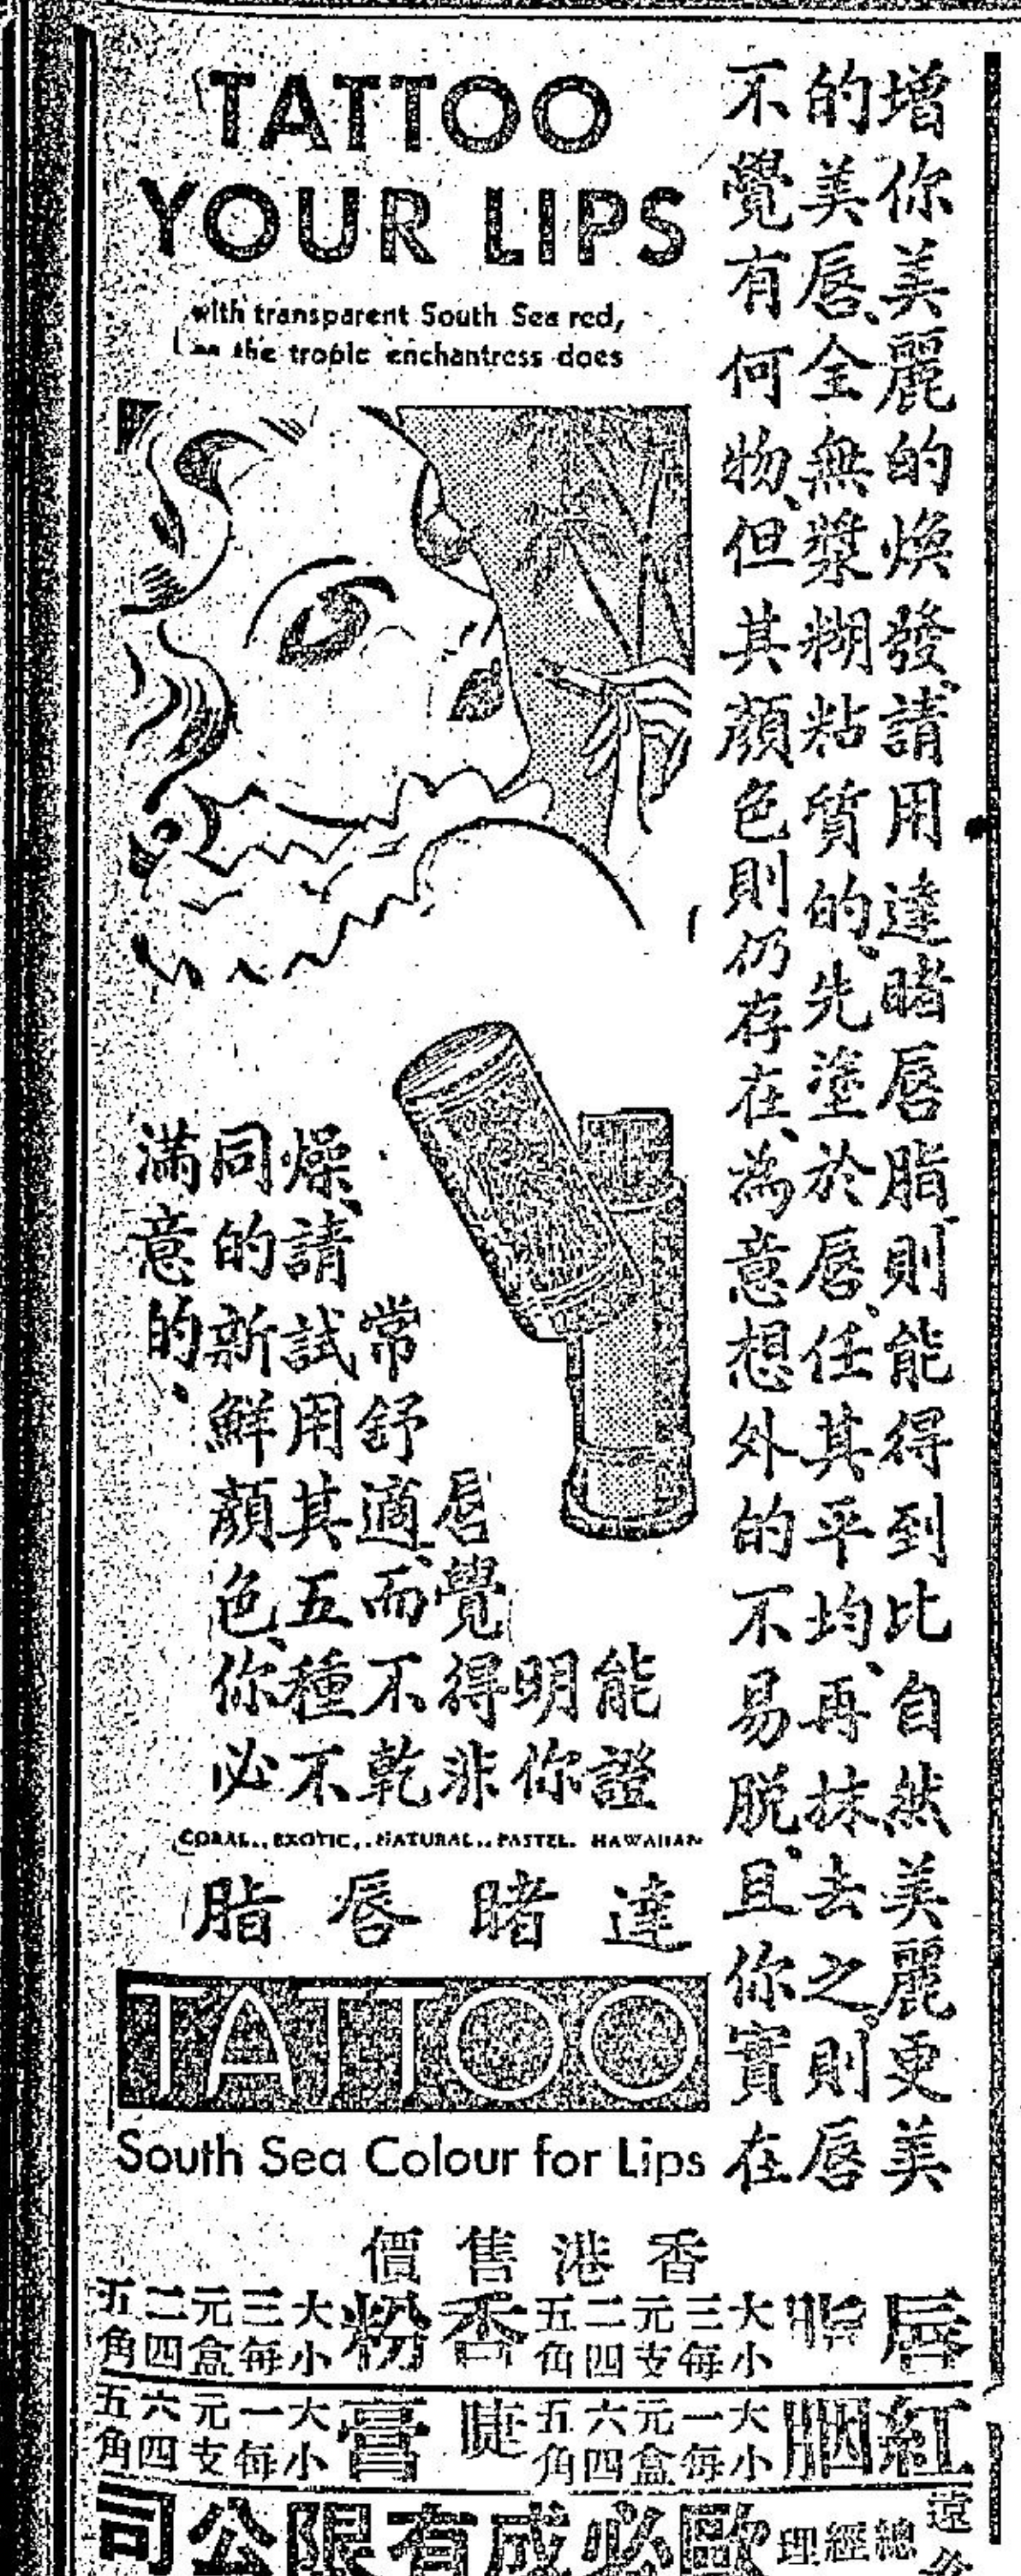 TATTOO
YOUR LIPS
with transparent South Sea red,
as the tropic enchantress does
增你美麗的煥發、請用達睹唇脂、則能得到比自然美麗更美
的美唇、全無漿糊粘質的、先塗於唇、任其平均、再抹去之。則唇
不覺有何物、但其顏色則仍存在、為意想外的不易脫、且你實在
能證
明你
唇覺得非
常舒適、而不乾
燥、請試用其五種不
同的新鮮顏色、你必
滿意的、
CORAL.. EXOTIC.. NATURAL.. PASTEL. HAWAIIAN
達睹唇脂
TATTOO
South Sea Colour for Lips
香港售價
唇脂 大三元二五
小每支四角
香粉 大三元二五
小每盒四角
紅胭 大一元六五
小每盒四角
睫膏 大一元六五
小每支四角
遠
總經理
歐必成有限公司